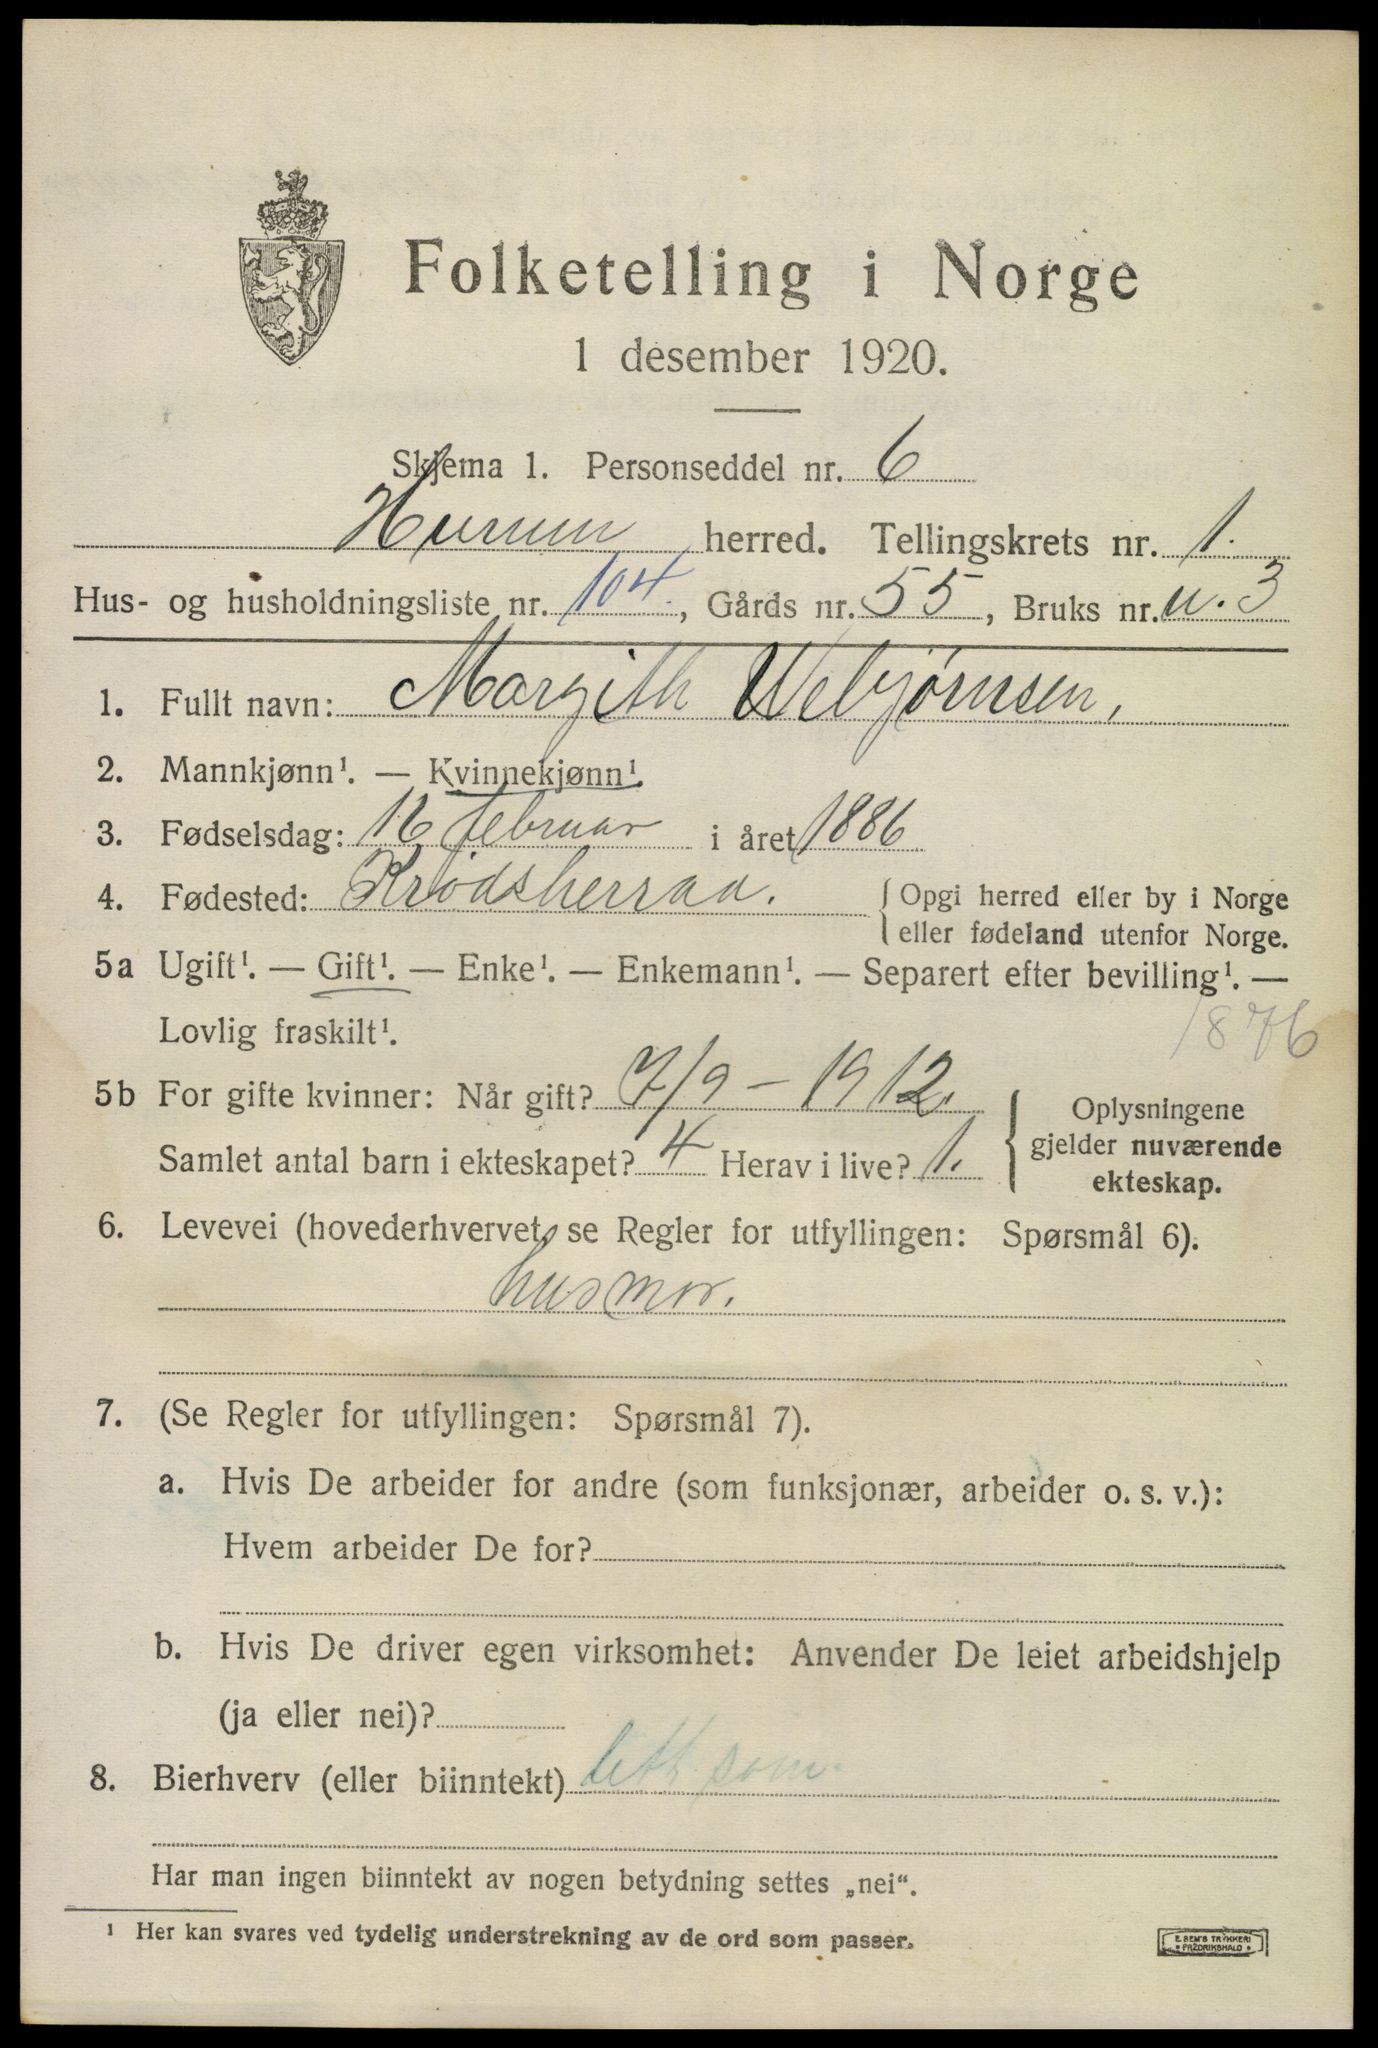 Folketelling i Norge
1 desember 1920.
Skjema 1. Personseddel nr. 6
Hurum herred. Tellingskrets nr. 1.
Hus- og husholdningsliste nr. 104., Gårds nr. 55, Bruks nr. u. 3
1. Fullt navn: Margith Webjørnsen,
2. Mannkjønn¹. — Kvinnekjønn¹.
3. Fødselsdag: 16 februar i året 1886
4. Fødested: Krødsherrad. { Opgi herred eller by i Norge
eller fødeland utenfor Norge.
5a Ugift¹. — Gift¹. — Enke¹. — Enkemann¹. — Separert efter bevilling¹. —
Lovlig fraskilt¹.
1876
5b For gifte kvinner: Når gift? 7/9 – 1912. { Oplysningene
gjelder nuværende
ekteskap.
Samlet antal barn i ekteskapet? 4 Herav i live? 1.
6. Levevei (hovederhvervet, se Regler for utfyllingen: Spørsmål 6).
husmor.
7. (Se Regler for utfyllingen: Spørsmål 7).
a. Hvis De arbeider for andre (som funksjonær, arbeider o. s. v.):
Hvem arbeider De for?
b. Hvis De driver egen virksomhet: Anvender De leiet arbeidshjelp
(ja eller nei)?
8. Bierhverv (eller biinntekt) litt søm.
Har man ingen biinntekt av nogen betydning settes „nei“.
¹ Her kan svares ved tydelig understrekning av de ord som passer.
E. SEM'S TRYKKERI
• FREDRIKSHALD •